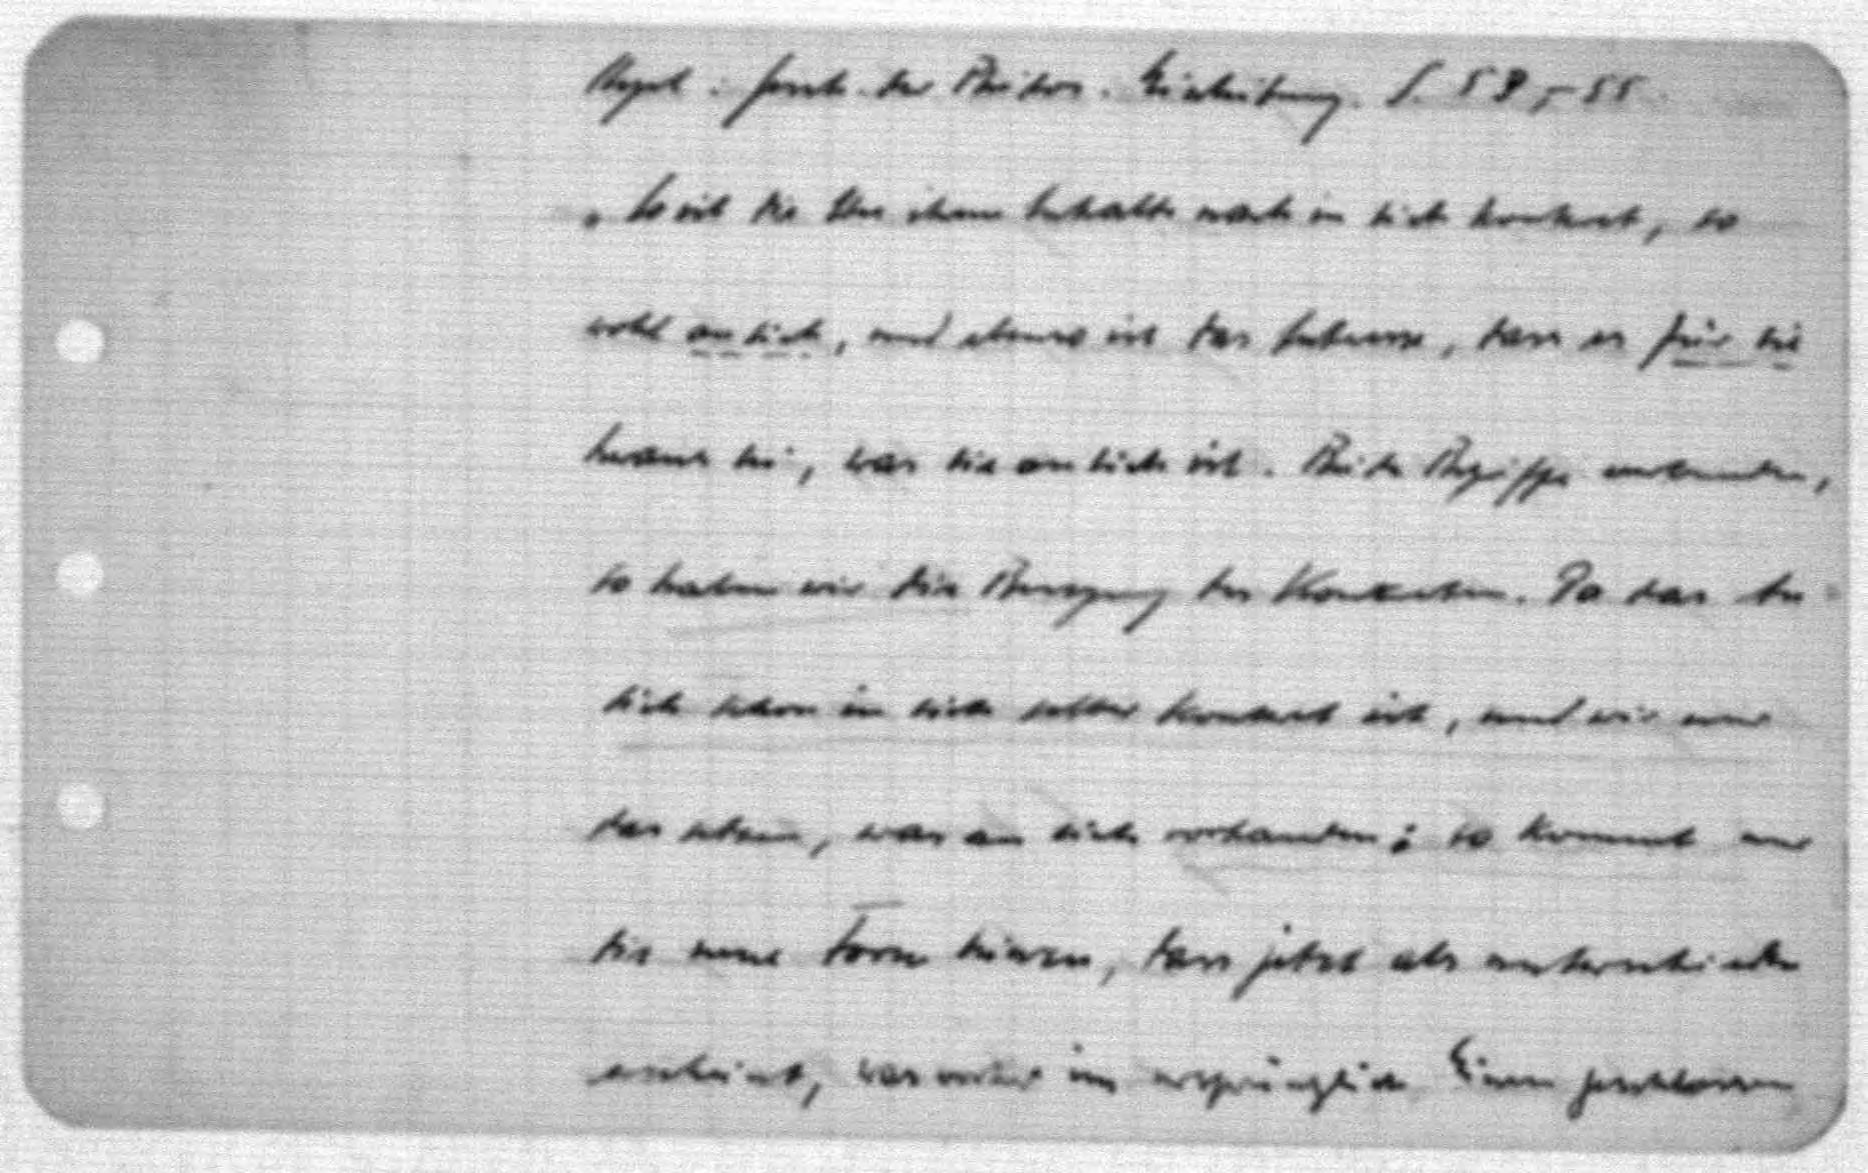 Hegel. Gesch. der Philos. Einleitung. S. 53,-55
„So ist die Idee ihrem Inhalte nach in sich konkret, so
wohl an sich, und ebenso ist das Interesse, dass es für sie
heraus sei, was sie an sich ist. Beide Begriffe verbunden,
so haben wir die Bewegung des Konkreten. Da das An
sich schon in sich selber konkret ist, und wir nur
das setzen, was an sich vorhanden; so kommt nur
die neue Form hinzu, dass jetzt als unterschieden
erscheint, was vorher im ursprünglich Einen geschlossen